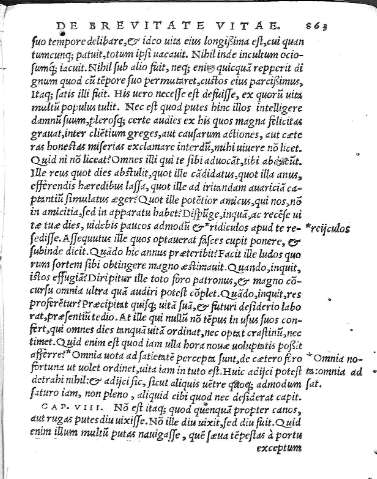 DE BREVITATE VITAE. 863
suo tempore delibare, & ideo uita eius longißima est, cui quan
tumcunq; patuit, totum ipsi uacauit. Nihil inde incultum ocio-
sumq; iacuit. Nihil sub alio fuit, neq; enim quicquã repperit di
gnum quod cũ tẽpore suo permutaret, custos eius parcißimus.
Itaq; satis illi fuit. His uero necesse est defuisse, ex quorũ uita
multũ populus tulit. Nec est quod putes hinc illos intelligere
damnũ suum, plerosq; certe audies ex his quos magna felicitas
grauat, inter clientium greges, aut causarum actiones, aut cæte
ras honestas miserias exclamare interdũ, mihi uiuere nõ licet.
Quid ni nõ liceat? Omnes illi qui te sibi aduocãt, tibi abducũt.
Ille reus quot dies abstulit, quot ille cãdidatus, quot illa anus,
efferendis hæredibus lassa, quot ille ad iritandam auariciã ca-
ptantiũ simulatus æger? Quot ille potẽtior amicus, qui nos, nõ
in amicitia, sed in apparatu habet? Dispũge, inquã, ac recẽse ui
tæ tuæ dies, uidebis paucos admodũ & *ridiculos apud te re- *reijculos
sedisse. Assequutus ille quos optauerat fasces cupit ponere, &
subinde dicit. Quãdo hic annus præteribit? Facit ille ludos quo
rum sortem sibi obtingere magno æstimauit. Quando, inquit,
istos effugiã? Diripitur ille toto foro patronus, & magno cõ-
cursu omnia ultra quã audiri potest cõplet. Quãdo, inquit, res
proferẽtur? Præcipitat quisq; uitã suã, & futuri desiderio labo
rat, præsentiũ tedio. At ille qui nullũ nõ tẽpus in usus suos con-
fert, qui omnes dies tanquã uitã ordinat, nec optat crastinũ, nec
timet. Quid enim est quod iam ulla hora nouæ uoluptatis poßit
afferre? *Omnia nota ad satietatẽ percepta sunt, de cætero fero *Omnia no-
fortuna ut uolet ordinet, uita iam in tuto est. Huic adijci potest ta: omnia ad
detrahi nihil: & adijci sic, sicut aliquis uẽtre q; admodum sat.
saturo iam, non pleno, aliquid cibi quod nec desiderat capit.
CAP. VIII. Nõ est itaq; quod quenquã propter canos,
aut rugas putes diu uixisse. Nõ ille diu uixit, sed diu fuit. Quid
enim illum multũ putas nauigasse, quẽ sæua tẽpestas à portu
exceptum